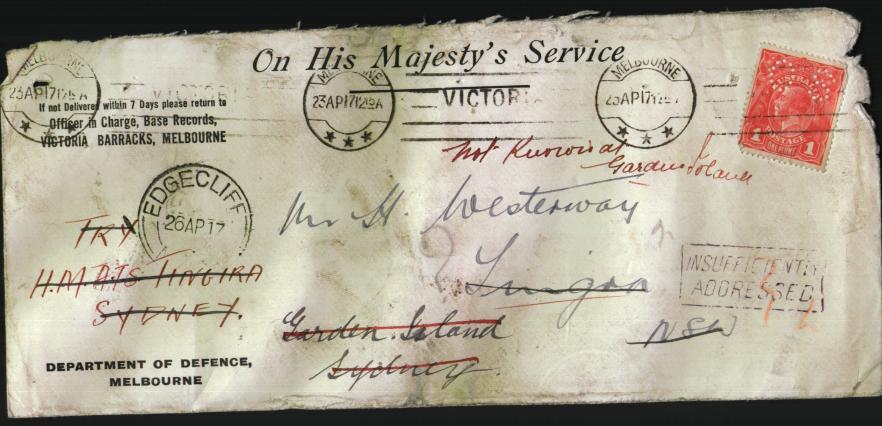 On His Majesty's Service
MELBOURNE
23AP17 1215A
VICTORI
MELBOURNE
23AP17 1215A
VICTORI
MELBOURNE
23AP17 12
AUSTRALIA
1 POSTAGE 1
ONE PENNY
If not Delivered within 7 Days please return to
Officer in Charge, Base Records,
VICTORIA BARRACKS, MELBOURNE
Not Known at
Garden Island
EDGECLIFF
26AP17
Mr H. Westerway
TRY
H.M.A.S TINGIRA
SYDNEY.
INSUFFICIENTLY
ADDRESSED
Garden Island
NSW
Sydney
DEPARTMENT OF DEFENCE,
MELBOURNE